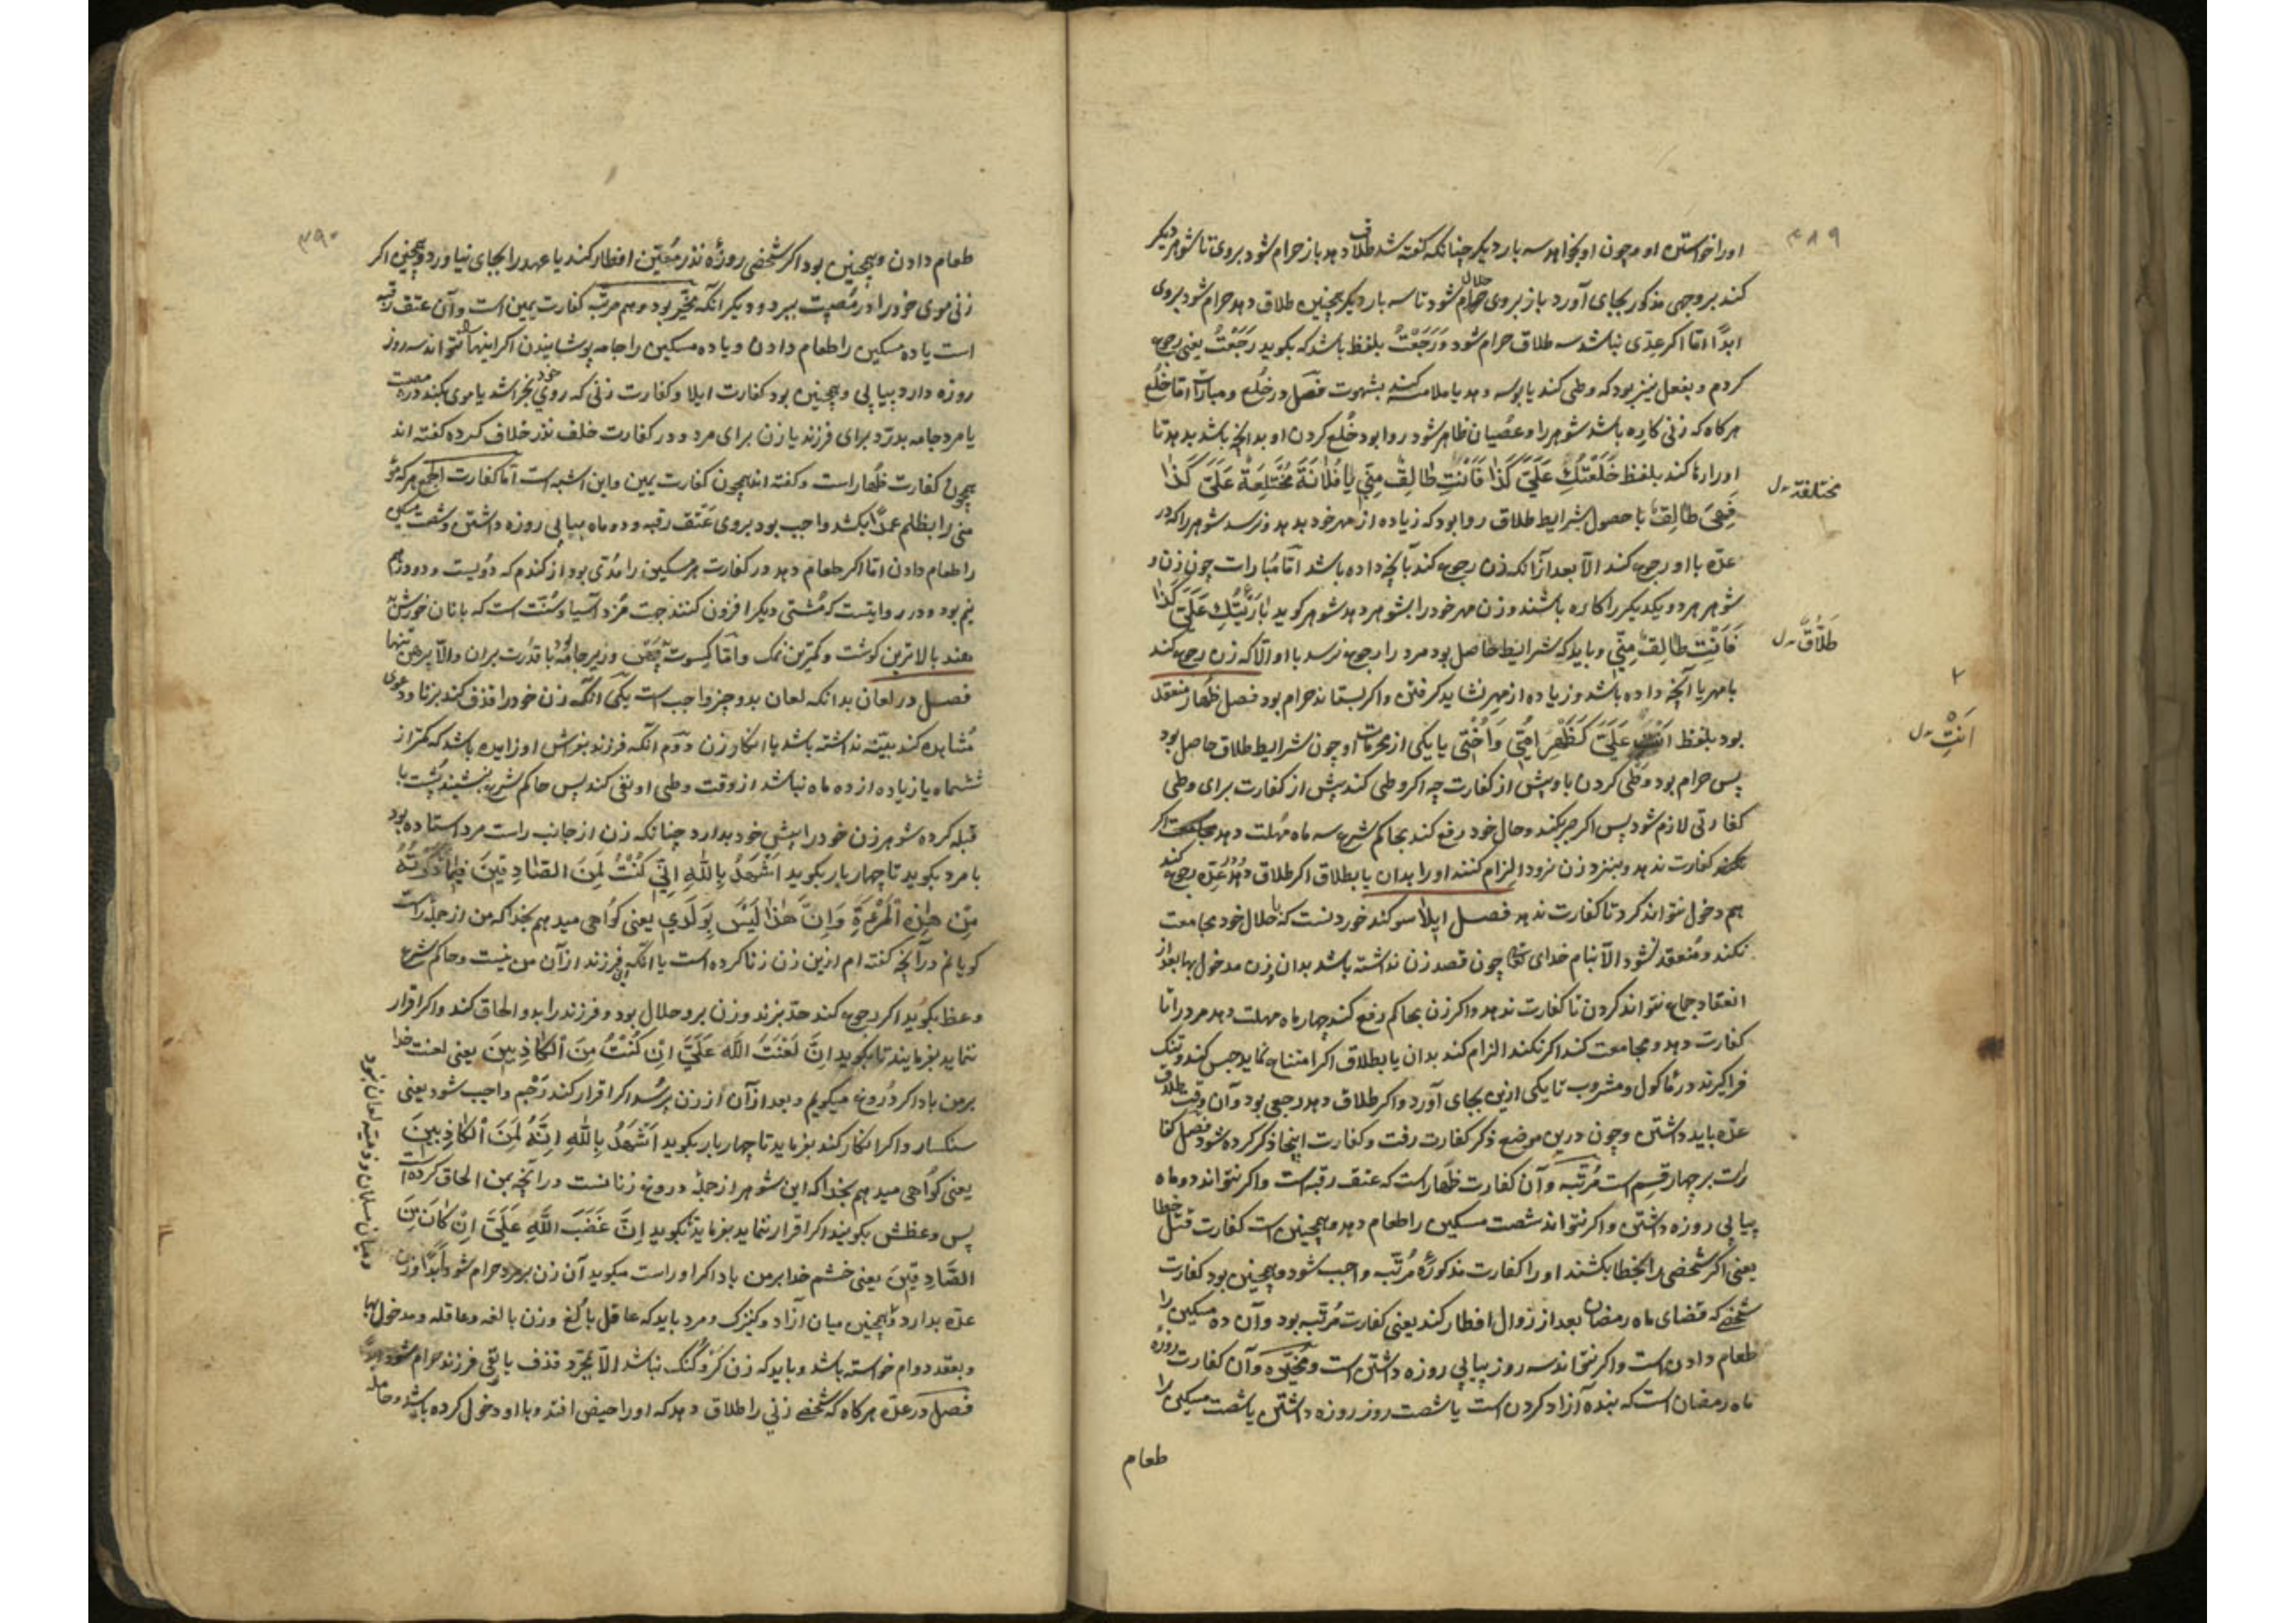 ۳۸۹
اورا خواستن او و چون او بخواهد سه بار دیگر چنانکه گفته شد طلاق دهد باز حرام شود بروی تا شوهر دیگر
کند بر وجهی مذکور بجای آورد باز بروی حلال شود تا سه بار دیگر همچنین طلاق دهد حرام شود بروی
ابدًا امّا اگر عدّی نباشد سه طلاق حرام شود وَرَجَعْتُ بلفظ باشد که بگوید رَجَعْتُ یعنی رجوع
کردم و بفعل نیز بود که وطی کند یا بوسه دهد یا ملامسه کند بشهوت فصل در خُلع و مبارات امّا خُلع
هرگاه که زنی کاره باشد شوهر را و عصیان ظاهر شود روا بود خُلع کردن او بدانچه باشد بدهد تا
اورا رها کند بلفظ خَلَعْتُكِ عَلَیَّ كَذٰا فَاَنْتِ طٰالِقٌ مِنّی یٰا فُلٰانَةَ مُخْتَلِعَةٌ عَلَیَ كَذٰا
فَهِیَ طٰالِقٌ با حصول شرایط طلاق روا بود که زیاده از مهر خود بدهد و نرسد شوهر را که در
عدّه با او رجوع کند الّا بعد از آنکه زن رجوع کند بآنچه داده باشد امّا مُبارات چون زن و
شوهر هر دو یکدیگر را کاره باشند و زن مهر خود را بشوهر دهد شوهر گوید بٰارَئْتُكِ عَلَیَ كَذٰا
فَاَنْتِ طٰالِقٌ مِنّی و باید که شرایط حاصل بود مرد را رجوع نرسد با او الّا که زن رجوع کند
با مهر یا آنچه داده باشد و زیاده از مهر نشاید گرفتن و اگر بستاند حرام بود فصل ظهار منعقد
بود بلفظ اَنْتِ عَلَیَ كَظَهْرِ اُمّی وَ اُخْتی یا یکی از محرمات او چون شرایط طلاق حاصل بود
پس حرام بود وَطی کردن با او پیش از کفارت چه اگر وطی کند پیش از کفارت برای وطی
کفارتی لازم شود پس اگر صبر نکند و حال خود رفع کند بحاکم شرع سه ماه مُهلت دهد اگر
کفارت ندهد و بنزد زن نرود الزام کنند او را بدان یا بطلاق اگر طلاق دهد و در عدّه رجوع کند
هم دخول نتواند کرد تا کفارت ندهد فصل ایلا سوگند خوردنست که با حلال خود مجامعت
نکند و مُنعقد نشود الّا بنام خدای تعالی چون قصد زن نداشته باشد بدان زن مدخول بها بعد از
انعقاد جماع نتواند کردن تا کفارت ندهد و اگر زن بحاکم رفع کند چهار ماه مهلت دهد مرد را تا
کفارت دهد و مجامعت کند اگر نکند الزام کند بدان یا بطلاق اگر امتناع نماید حبس کند و تنگ
فراگیرند در مأکول و مشروب تا یکی ازین بجای آورد و اگر طلاق دهد رجعی بود و آن وقت طلاق
عدّه باید داشتن و چون درین موضع ذکر کفارت رفت و کفارت اینجا ذکر کرده شود فصل کفا
رات بر چهار قسم است مُرتّبه و آن کفارت ظهار است که عتق رقبه است و اگر نتواند دو ماه
پیاپی روزه داشتن و اگر نتواند شصت مسکین را طعام دهد و همچنین است کفارت قتل خطا
یعنی اگر شخصی را بخطا بکشند او را کفارت مذکورهٔ مُرتّبه واجب شود و همچنین بود کفارت
شخصی که قضای ماه رمضان بعد از زوال افطار کند یعنی کفارت مُرتّبه بود و آن ده مسکین را
طعام دادن است و اگر نتواند سه روز پیاپی روزه داشتن است و مُخیّره و آن کفارت روزهٔ
ماه رمضان است که بنده آزاد کردن است یا شصت روز روزه داشتن یا شصت مسکین را
طعام
طَلَاقٌ ـ ل
۲
اَنْتِ ـ ل
۳۹۰
طعام دادن و همچنین بود اگر شخصی روزهٔ نذر مُعیّن افطار کند یا عهد را بجای نیاورد و همچنین اگر
زنی موی خود را در مُصیبت ببرد و دیگر انکه مخیّر بود و هم مرتّب کفارت یمین است و آن عتق رقبه
است یا ده مسکین را طعام دادن و یا ده مسکین را جامه پوشانیدن اگر اینها نتواند سه روز
روزه دارد پیاپی و همچنین بود کفارت ایلا و کفارت زنی که روی خود بخراشد یا موی بکند در مصیبت
یا مرد جامه بدرّد برای فرزند یا زن برای مرد و در کفارت خلف نذر خلاف کرده گفته اند
همچون کفارت ظهار است و گفته اند همچون کفارت یمین و این اشبه است امّا کفارت الجمع هر که مؤ
منی را بظلم عمدًا بکشد واجب بود بروی عتق رقبه و دو ماه پیاپی روزه داشتن و شصت مسکین
را طعام دادن امّا اگر طعام دهد در کفارت هر مسکین را مُدّی بود از گندم که دویست و دو درهم
نیم بود و در روایتست که مُشتی دیگر افزون کنند جهت مُزد آسیا و سُنّت است که با نان خورش
دهند بالاترین گوشت و کمترین نمک و امّا کسوت و زیر جامه بود با قدرت بران والّا پیرهن تنها
فصل در لعان بدانکه لعان بدو چیز واجب است یکی انکه زن خود را قذف کند بزنا و دعوی
مُشاهده کند بیّنه نداشته باشد با انکار زن دوّم انکه فرزند بفراش او زاییده باشد که کمتر از
ششماه یا زیاده از ده ماه نباشد از وقت وطی او نفی کند پس حاکم شرع بنشیند پُشت با
قبله کرده شوهر زن خود را پیش خود بدارد چنانکه زن از جانب راست مرد استاده بود
با مرد بگوید تا چهار بار بگوید اَشْهَدُ بِاللهِ اِنّی كُنْتُ لَمِنَ الصّٰادِقینَ فیمٰا ذَكَرْتُهُ
مِنْ هٰذِهِ الْمَرْءَةِ وَ اِنَّ هٰذٰا لَیْسَ بِوَلَدی یعنی گواهی میدهم بخدا که من از جملهٔ راست
گویانم در آنچه گفته ام ازین زن زنا کرده است یا انکه این فرزند از آن من نیست و حاکم شرع
وعظ بگوید اگر رجوع کند حدّ بزند و زن برو حلال بود و فرزند را بدو الحاق کند و اگر اقرار
ننماید بفرمایند تا بگوید اِنَّ لَعْنَتَ اللهِ عَلَیَّ اِنْ كُنْتُ مِنَ الْكٰاذِبینَ یعنی لعنت خدا
بر من باد اگر دُروغ میگویم و بعد از آن از زن پرسد اگر اقرار کند رَجْم واجب شود یعنی
سنگسار و اگر انکار کند بفرماید تا چهار بار بگوید اَشْهَدُ بِاللهِ اِنَّهُ لَمِنَ الْكٰاذِبینَ
یعنی گواهی میدهم بخدا که این شوهر از جملهٔ دروغ زنانست در آنچه بمن الحاق کرده است
پس وعظش بگویند اگر اقرار ننماید بفرماید تا بگوید اِنَّ غَضَبَ اللهِ عَلَیَّ اِنْ كٰانَ مِنَ
الصّٰادِقینَ یعنی خشم خدا بر من باد اگر او راست میگوید آن زن بر مرد حرام شود ابدًا و زن
عدّه بدارد و همچنین میان آزاد و کنیزک و مرد باید که عاقل بالغ و زن بالغه و عاقله و مدخول بها
و بعقد دوام خواسته باشد و باید که زن کر و گنگ نباشد الّا بمجرّد قذف یا نفی فرزند حرام شود
فصل در عدّه هرگاه که شخصی زنی را طلاق دهد که او را حیض افتد و با او دخول کرده باشد و حامله
و میان مسلمان و ذمّیه لعان نبود